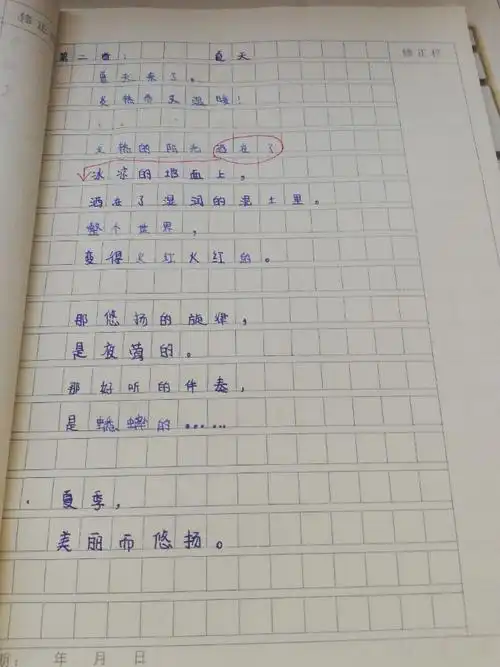 修正栏
第二章： 夏天
夏天来了。
炎热而又温暖！
炎热的阳光洒在了
冰凉的地面上，
洒在了湿润的混土里。
整个世界，
变得火红火红的。
那悠扬的旋律，
是夜莺的。
那好听的伴奏，
是蟋蟀的……
夏季，
美丽而悠扬。
年 月 日